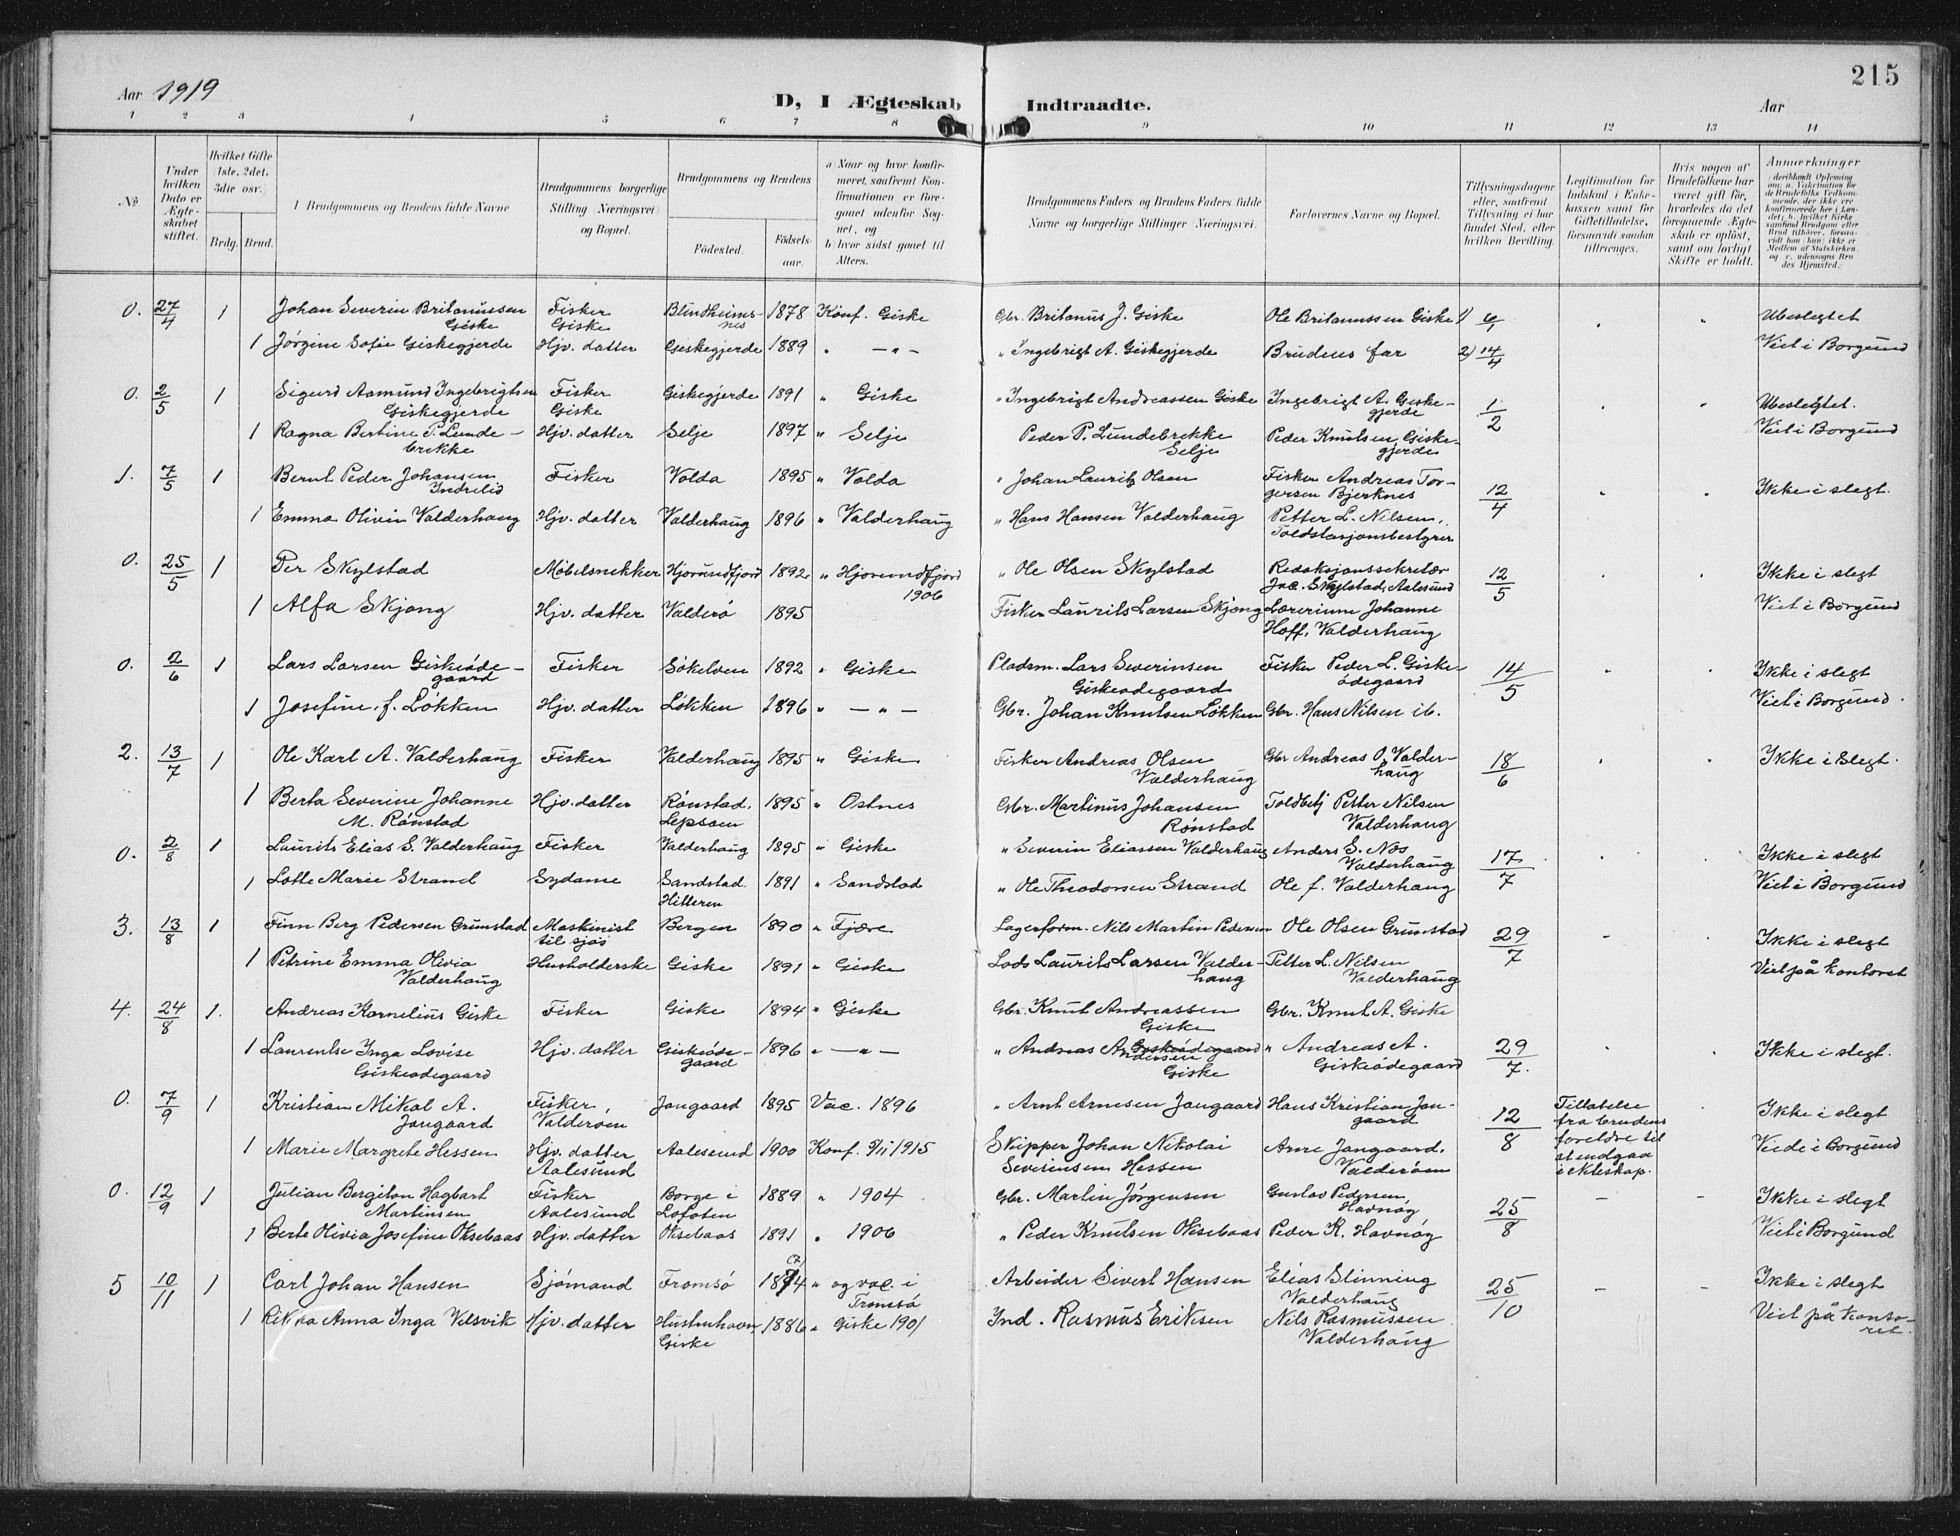 Aar 1919
D, I Ægteskab Indtraadte.
Aar
215
1 2 3 4 5 6 7 8 9 10 11 12 13 14
No
Under hvilken Dato er Ægteskabet stiftet.
Hvilket Gifte (1ste, 2det, 3die osv.
Brdg. Brud.
Brudgommens og Brudens fulde Navne
Brudgommens borgerlige Stilling (Næringsvei) og Bopæl.
Brudgommens og Brudens
Födested.
Födselsaar.
a) Naar og hvor konfirmeret, saafremt Konfirmationen er foregaaet udenfor Sognet, og
b) hvor sidst gaaet til Alters.
Brudgommens Faders og Brudens Faders fulde Navne og borgerlige Stillinger (Næringsvei).
Forlovernes Navne og Bopæl.
Tillysningsdagene eller, saafremt Tillysning ei har fundet Sted, efter hvilken Bevilling.
Legitimation for Indskud i Enkekassen samt for Giftetilladelse, forsaavidt saadan tiltrænges.
Hvis nogen af Brudefolkene har været gift för, hvorledes da det foregaaende Ægteskab er oplöst, samt om lovligt Skifte er holdt.
Anmerkninger
0. 27/4 1 Johan Severin Britanussen Giske Fisker Giske Blindheimsnes 1878 Konf. Giske Gbr. Britanus J. Giske Ole Britanussen Giske 1) Ubeslegtet
1 Jørgine Sofie Giskegjerde Hjv. datter Giskegjerde 1889 " — " — " Ingebrigt A. Giskegjerde Brudens far 2) 14/4 Viet i Borgund
0. 2/5 1 Sigurd Aamund Ingebrigtsen Giskegjerde Fisker Giske Giskegjerde 1891 " Giske " Ingebrigt Andreassen Giske Ingebrigt A. Giskegjerde 1/2 Ubeslegtet.
1 Ragna Bertine P. Lundebrekke Hjv. datter Selje 1897 " Selje Peder P. Lundebrekke Selje Peder Knutsen, Giskegjerde Viet i Borgund
1. 7/5 1 Bernt Peder Johansen Indrelid Fisker Volda 1895 " Volda " Johan Lauritz Olsen Fisker Andreas Torgersen Bjerknes 12/4 Ikke i slegt.
1 Emma Olivia Valderhaug Hjv. datter Valderhaug 1896 " Valderhaug " Hans Hansen Valderhaug Petter L. Nilsen, Toldstasjonsbestyrer
0. 25/5 1 Per Skylstad Møbelsnekker Hjorundfjord 1892 " Hjorundfjord 1906 " Ole Olsen Skylstad Redaksjonssekretær Jac. Skylstad, Aalesund 12/5 Ikke i slegt
1 Alfa Skjong Hjv. datter Valderö 1895 Fisker Laurits Larsen Skjong Lærerinne Johanne Hoff, Valderhaug Viet i Borgund
0. 2/6 1 Lars Larsen Giskeödegaard Fisker Sökelven 1892 " Giske Pladsm. Lars Severinsen Giskeødegaard Fisker Peder L. Giskeødegaard 14/5 Ikke i slegt
1 Josefine f. Løkken Hjv. datter Løkken 1896 " — " — Gbr. Johan Knutsen Løkken Gbr. Hans Nilsen ib. Viet i Borgund.
2. 13/7 1 Ole Karl A. Valderhaug Fisker Valderhaug 1895 " Giske Fisker Andreas Olsen Valderhaug Gbr Andreas O. Valderhaug 18/6 Ikke i slegt.
1 Berta Severine Johanne M. Rønstad Hjv. datter Rønstad, Lepsøen 1895 " Ostnes Gbr. Martinus Johansen Rønstad Toldbetj Petter Nilsen Valderhaug
0. 2/8 1 Laurits Elias S. Valderhaug Fisker Valderhaug 1895 " Giske " Severin Eliassen Valderhaug Anders S. Nos Valderhaug 17/7 Ikke i slegt
1 Lotte Marie Strand Sydame Sandstad Hitteren 1891 " Sandstad " Ole Theodorsen Strand Ole f. Valderhaug Viet i Borgund
3. 13/8 1 Finn Berg Pedersen Grunstad Maskinist til sjøs Bergen 1890 " Fjære Lagerform. Nils Martin Pedersen Ole Olsen Grunstad 29/7 Ikke i slegt
1 Petrine Emma Olivia Valderhaug Husholderske Giske 1891 " Giske Lods Laurits Larsen Valderhaug Petter L. Nilsen Valderhaug Viet på kontoret
4. 24/8 1. Andreas Kornelius Giske Fisker Giske 1894 " Giske Gbr. Knut Andreassen Giske Gbr. Knut A. Giske
1 Laurentse Inga Lovise Giskeødegaard Hjv. datter Giskeødegaard 1896 " — " — " Andreas Andersen Giskeödegaard Giske " Andreas A. Giskeödegaard 29/7. Ikke i slegt.
0. 7/9 1 Kristian Mikal A. Jangaard Fisker, Valderøen Jangaard 1895 Vac. 1896 " Arnt Arnesen Jangaard Hans Kristian Jangaard 12/8 Tillatelse fra brudens foreldre til at indgaa i ekteskap. Ikke i slegt
1 Marie Margrete Hessen Hjv. datter Aalesund Aalesund 1900 Konf. 1915 Skipper Johan Nikolai Severinsen Hessen Arne Jangaard, Valderöen Viede i Borgund
0. 12/9 1 Julian Bergiton Hagbart Martinsen Fisker Aalesund Borge i Lofoten 1889 " 1904 Gbr. Martin Jørgensen Gustav Pedersen, Havnøg 25/8 Ikke i slegt
1 Berte Olivia Josefine Oksebaas Hjv. datter Oksebaas 1891 " 1906 " Peder Knutsen Oksebaas Peder K. Havnøg Viet i Borgund
5 10/11 1 Carl Johan Hansen Sjömand Tromsö 1874 " og vac. i Tromsö Arbeider Sivert Hansen Elias Slinning Valderhaug 25/10 Ikke i slegt
1 Anna Inga Velsvik Hjv. datter Giske 1886 " Giske 1901 Ind. Rasmus Eriksen Nils Rasmussen Valderhaug Viet på kontoret.